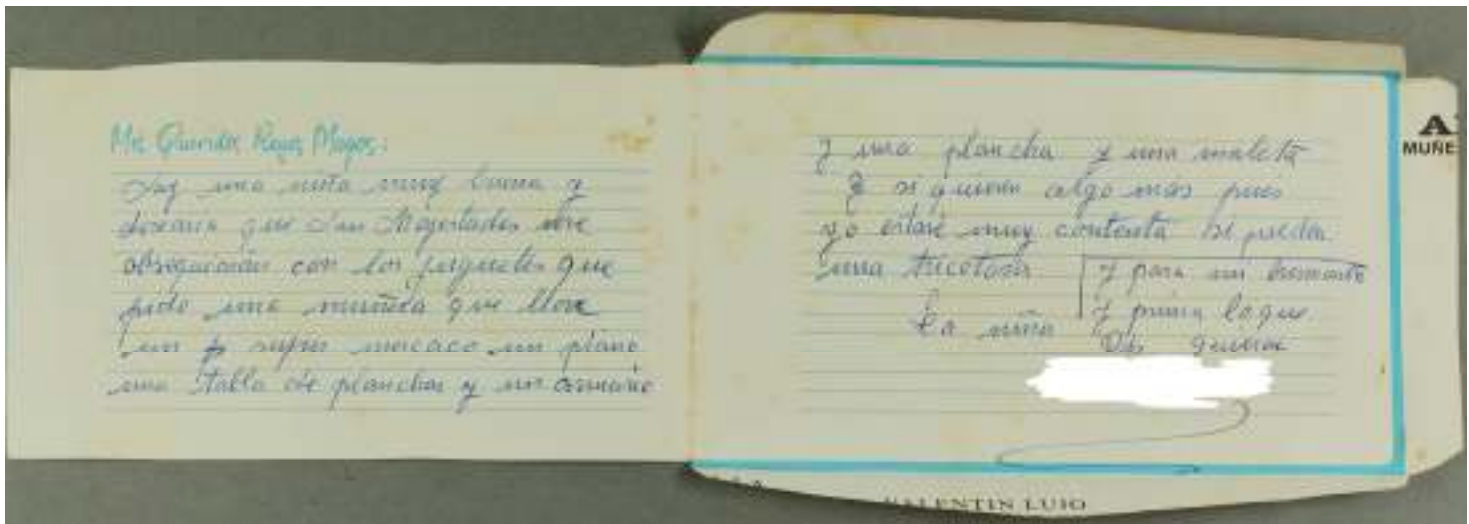 Mis Queridos Reyes Magos:
Soy una niña muy buena y
desearia que Sus Magestades me
obsequiaran con los juguetes que
pido una muñeca que llore
un super mercaco un piano
una tabla de planchar y un armario
y una plancha y una maleta
y si quieren algo más pues
yo estaré muy contenta si puedan
una tricotosa
y para mi hermanito
y prima loque
Vds quieran
La niña
A
MUÑE
VALENTIN LUJO